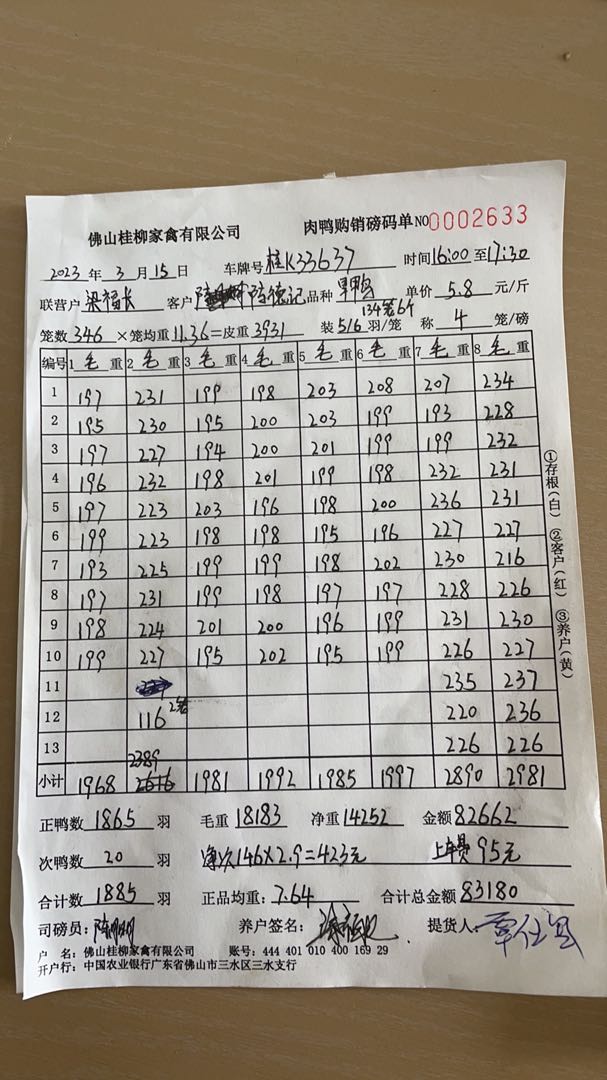 佛山桂柳家禽有限公司 肉鸭购销磅码单 NO 0002633
2023 年 3 月 15 日 车牌号 桂K33637 时间 16:00 至 17:30
联营户 梁福长 客户 陆德记 品种 单价 5.8 元/斤
134笼64
笼数 346 ×笼均重 11.36 =皮重 3931 装 5/6 羽/笼 称 4 笼/磅
编号 1 毛 重 2 毛 重 3 毛 重 4 毛 重 5 毛 重 6 毛 重 7 毛 重 8 毛 重
1 197 231 199 198 203 208 207 234
2 195 230 195 200 203 199 193 228
3 197 227 194 200 201 199 199 232
4 196 232 198 201 199 198 232 231
5 197 223 203 196 198 200 236 231
6 199 223 198 198 195 196 227 227
7 193 225 199 199 198 202 230 216
8 197 231 199 198 197 197 228 226
9 198 224 201 200 196 199 231 230
10 199 227 195 202 195 199 226 227
11 235 237
12 116 2笼 220 236
13 226 226
2389
小计 1968 2616 1981 1992 1985 1997 2890 2981
①存根(白) ②客户(红) ③养户(黄)
正鸭数 1865 羽 毛重 18183 净重 14252 金额 82662
次鸭数 20 羽 次146×2.9=423元 上车费95元
合计数 1885 羽 正品均重: 7.64 合计总金额 83180
司磅员: 养户签名: 提货人:
户 名: 佛山桂柳家禽有限公司 账号: 444 401 010 400 169 29
开户行: 中国农业银行广东省佛山市三水区三水支行